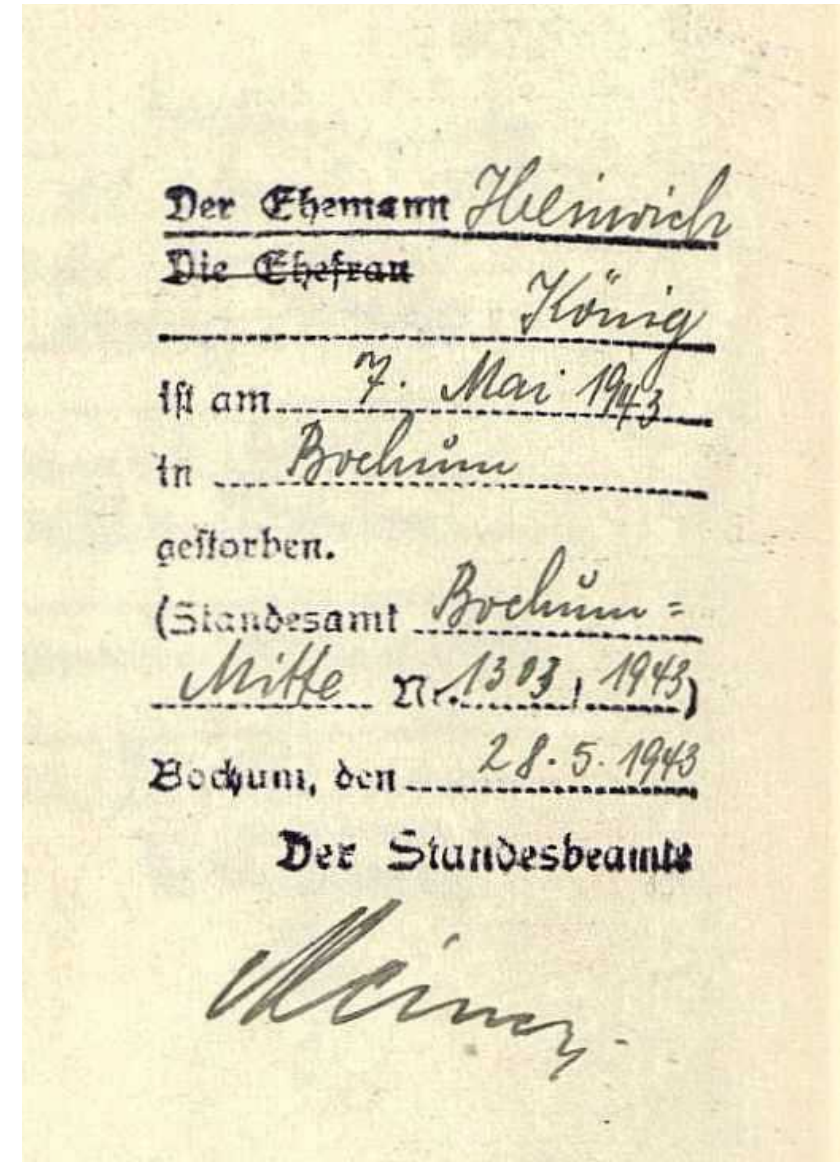 Der Ehemann Heinrich
Die Ehefrau
König
ist am 7. Mai 1943
in Bochum
gestorben.
(Standesamt Bochum=
Mitte Nr. 1303 / 1943)
Bochum, den 28.5.1943
Der Standesbeamte